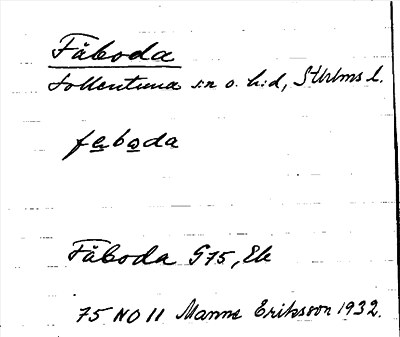 Fåboda
Sollentuna s:n o. h:d, Sthlms l.
faboda
Fåboda G75, Ek
75 NO 11 Manne Eriksson 1932.